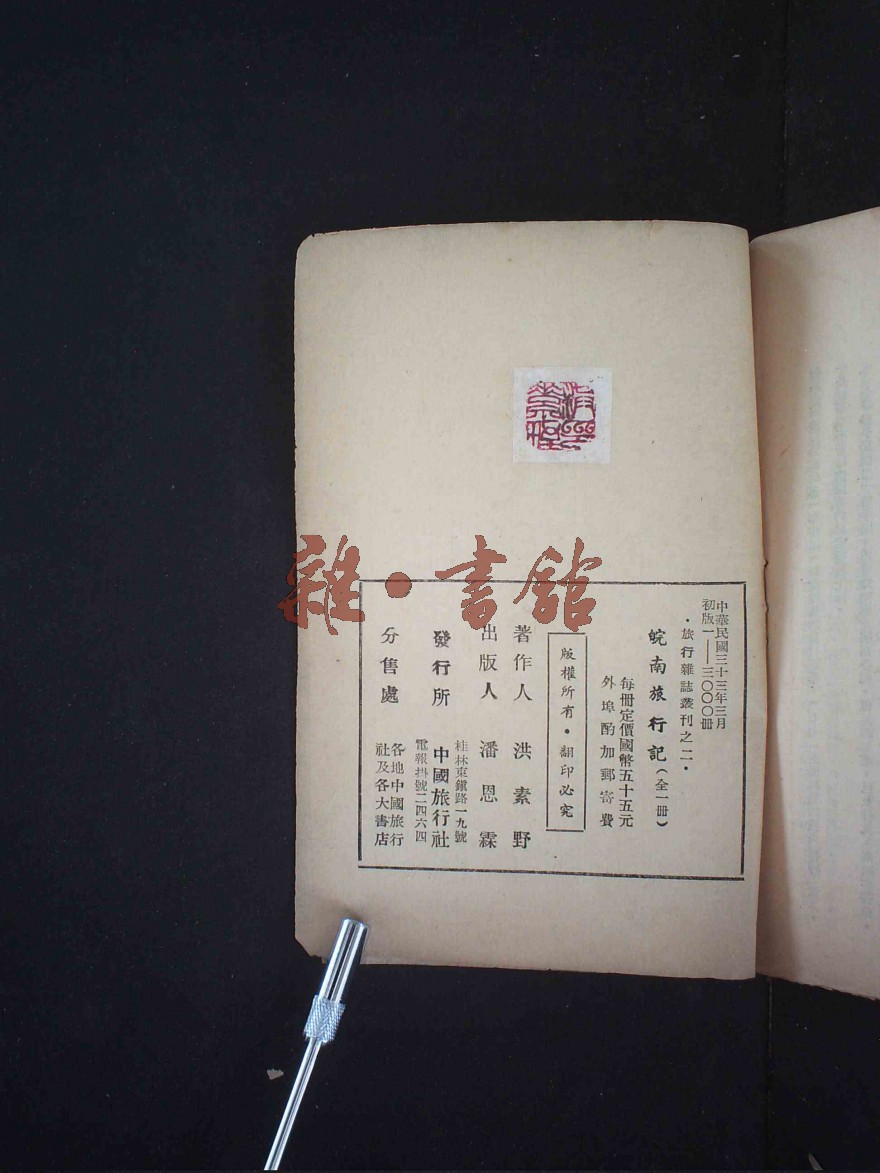 雜·書館
中華民國三十三年三月
初版一——三〇〇〇冊
·旅行雜誌叢刊之二·
皖南旅行記(全一冊)
每冊定價國幣五十五元
外埠酌加郵寄費
版權所有·翻印必究
著作人 洪素野
出版人 潘恩霖
發行所
桂林東鎮路一九號
中國旅行社
電報掛號二四六四
分售處
各地中國旅行
社及各大書店